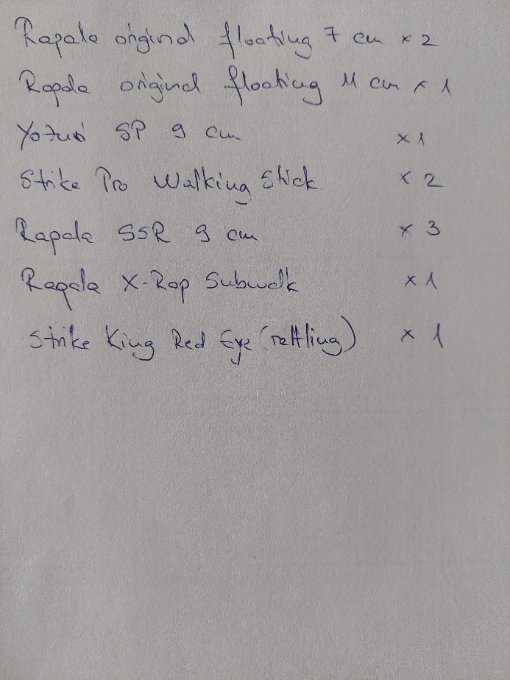 Rapala original floating 7 cm x 2
Rapala original floating 11 cm x 1
Yozuri SP 9 cm x 1
Strike Pro Walking Stick x 2
Rapala SSR 9 cm x 3
Rapala X-Rap Subwalk x 1
Strike King Red Eye (rattling) x 1